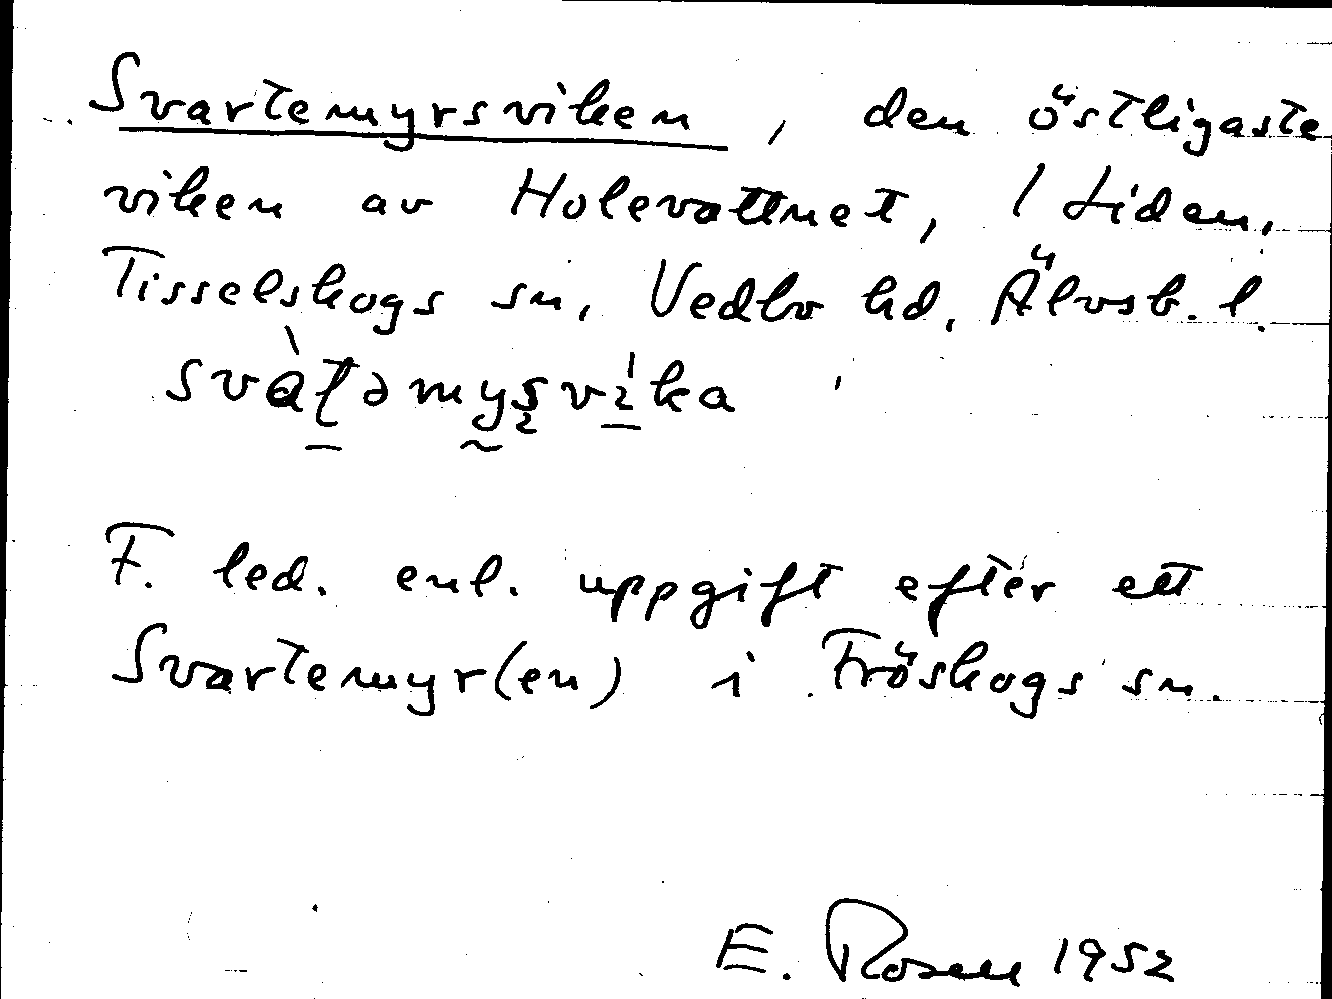 Svartemyrsviken, den östligaste
viken av Holevattnet, / Liden,
Tisselskogs sn, Vedbo hd, Älvsb. l.
svàʈəmyʂvi̱ka
F. led. enl. uppgift efter ett
Svartemyr(en) i Fröskogs sn.
E. Rosell 1952